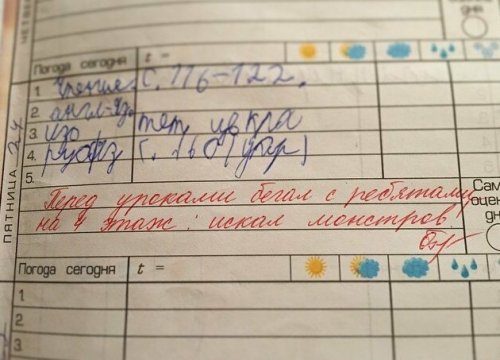 ЧЕТВЕ
Погода сегодня t =
1 Чтение с. 116-122.
2. англ-яз
3 изо тет, цв кра
4. ру
5.
ПЯТНИЦА 24
Перед уроками бегал с ребятами
на 4 этаж: искал монстров.
Сам
оцен
дн
Погода сегодня t =
1
2.
3.